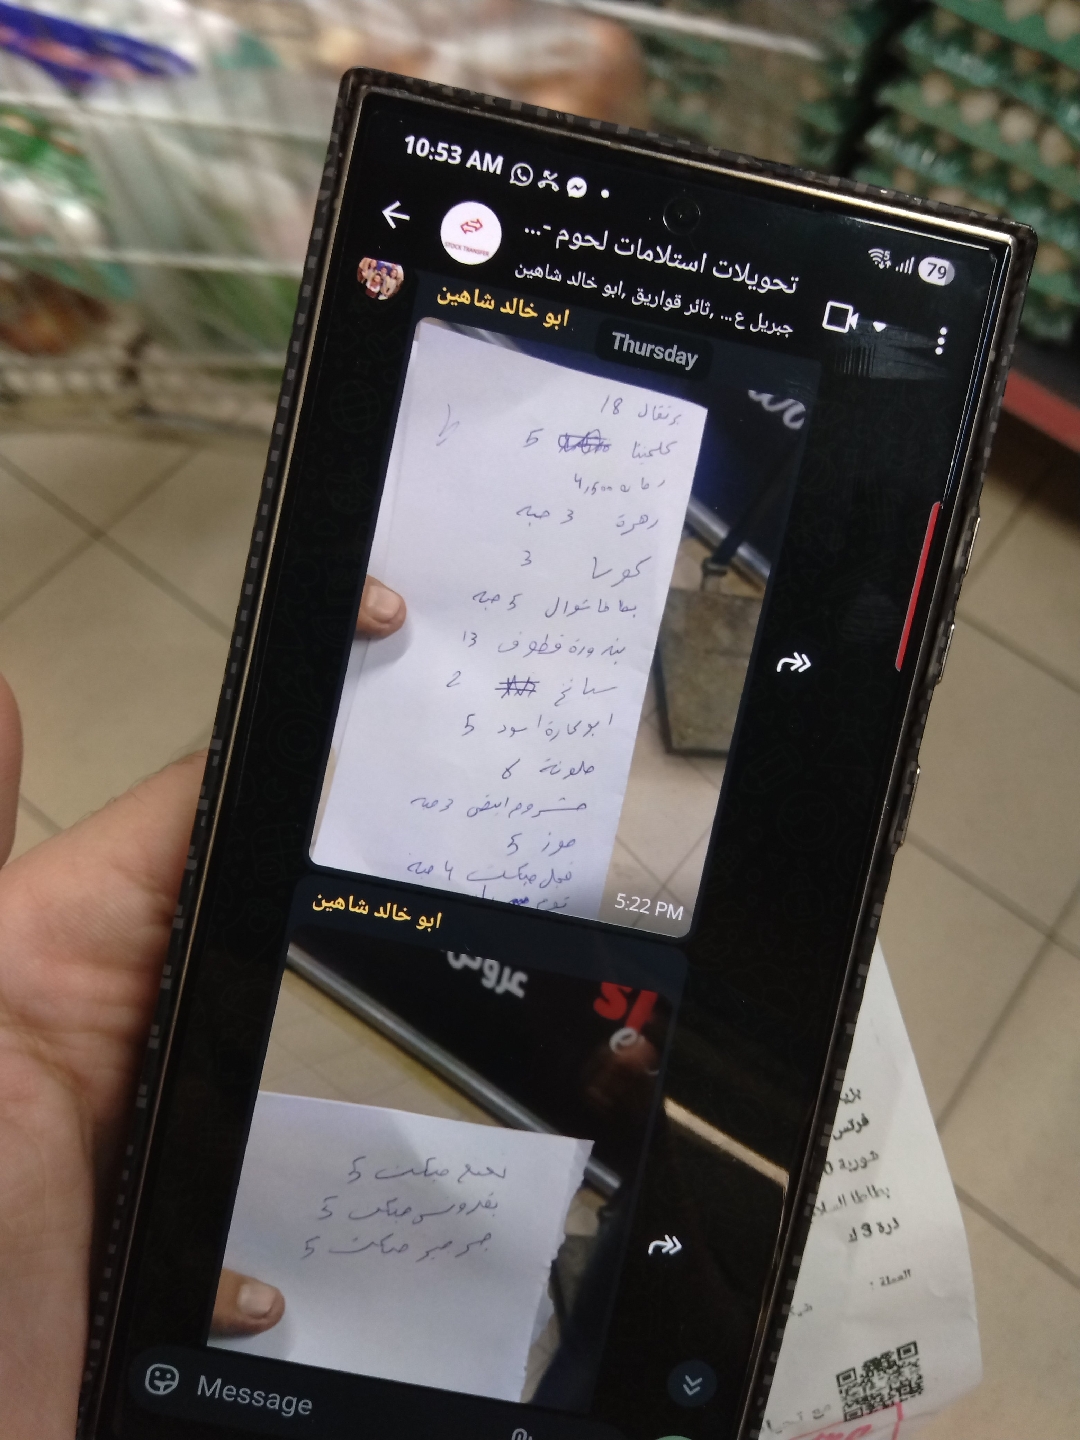 10:53 AM
79
تحويلات استلامات لحوم -...
جبريل ع... ,ثائر قواريق ,ابو خالد شاهين
STOCK TRANSFER
ابو خالد شاهين
Thursday
برتقال 18
كلمنتا 5
رمانه 4,500
زهرة 3 حبه
كوسا 3
بطاطا شوال 5 حبه
بندورة قطوف 13
سبانخ 2
ابو عمارة اسود 5
ملونة 6
مشروم ابيض 3 حبه
موز 5
فجل مبكت 4 حبه
توم
5:22 PM
ابو خالد شاهين
عروض
نعنع مبكت 5
بقدونس مبكت 5
جرجير مبكت 5
Message
فرتس
شورية
بطاطا السلا
ذرة 3 ك
العملة :